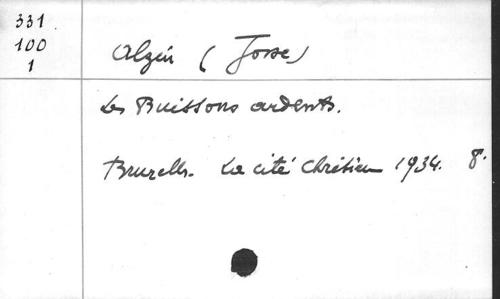 331
100
1
Alzin (Josse)
Les Buissons ardents.
Bruxelles. La cité chrétienne 1934. 8°.